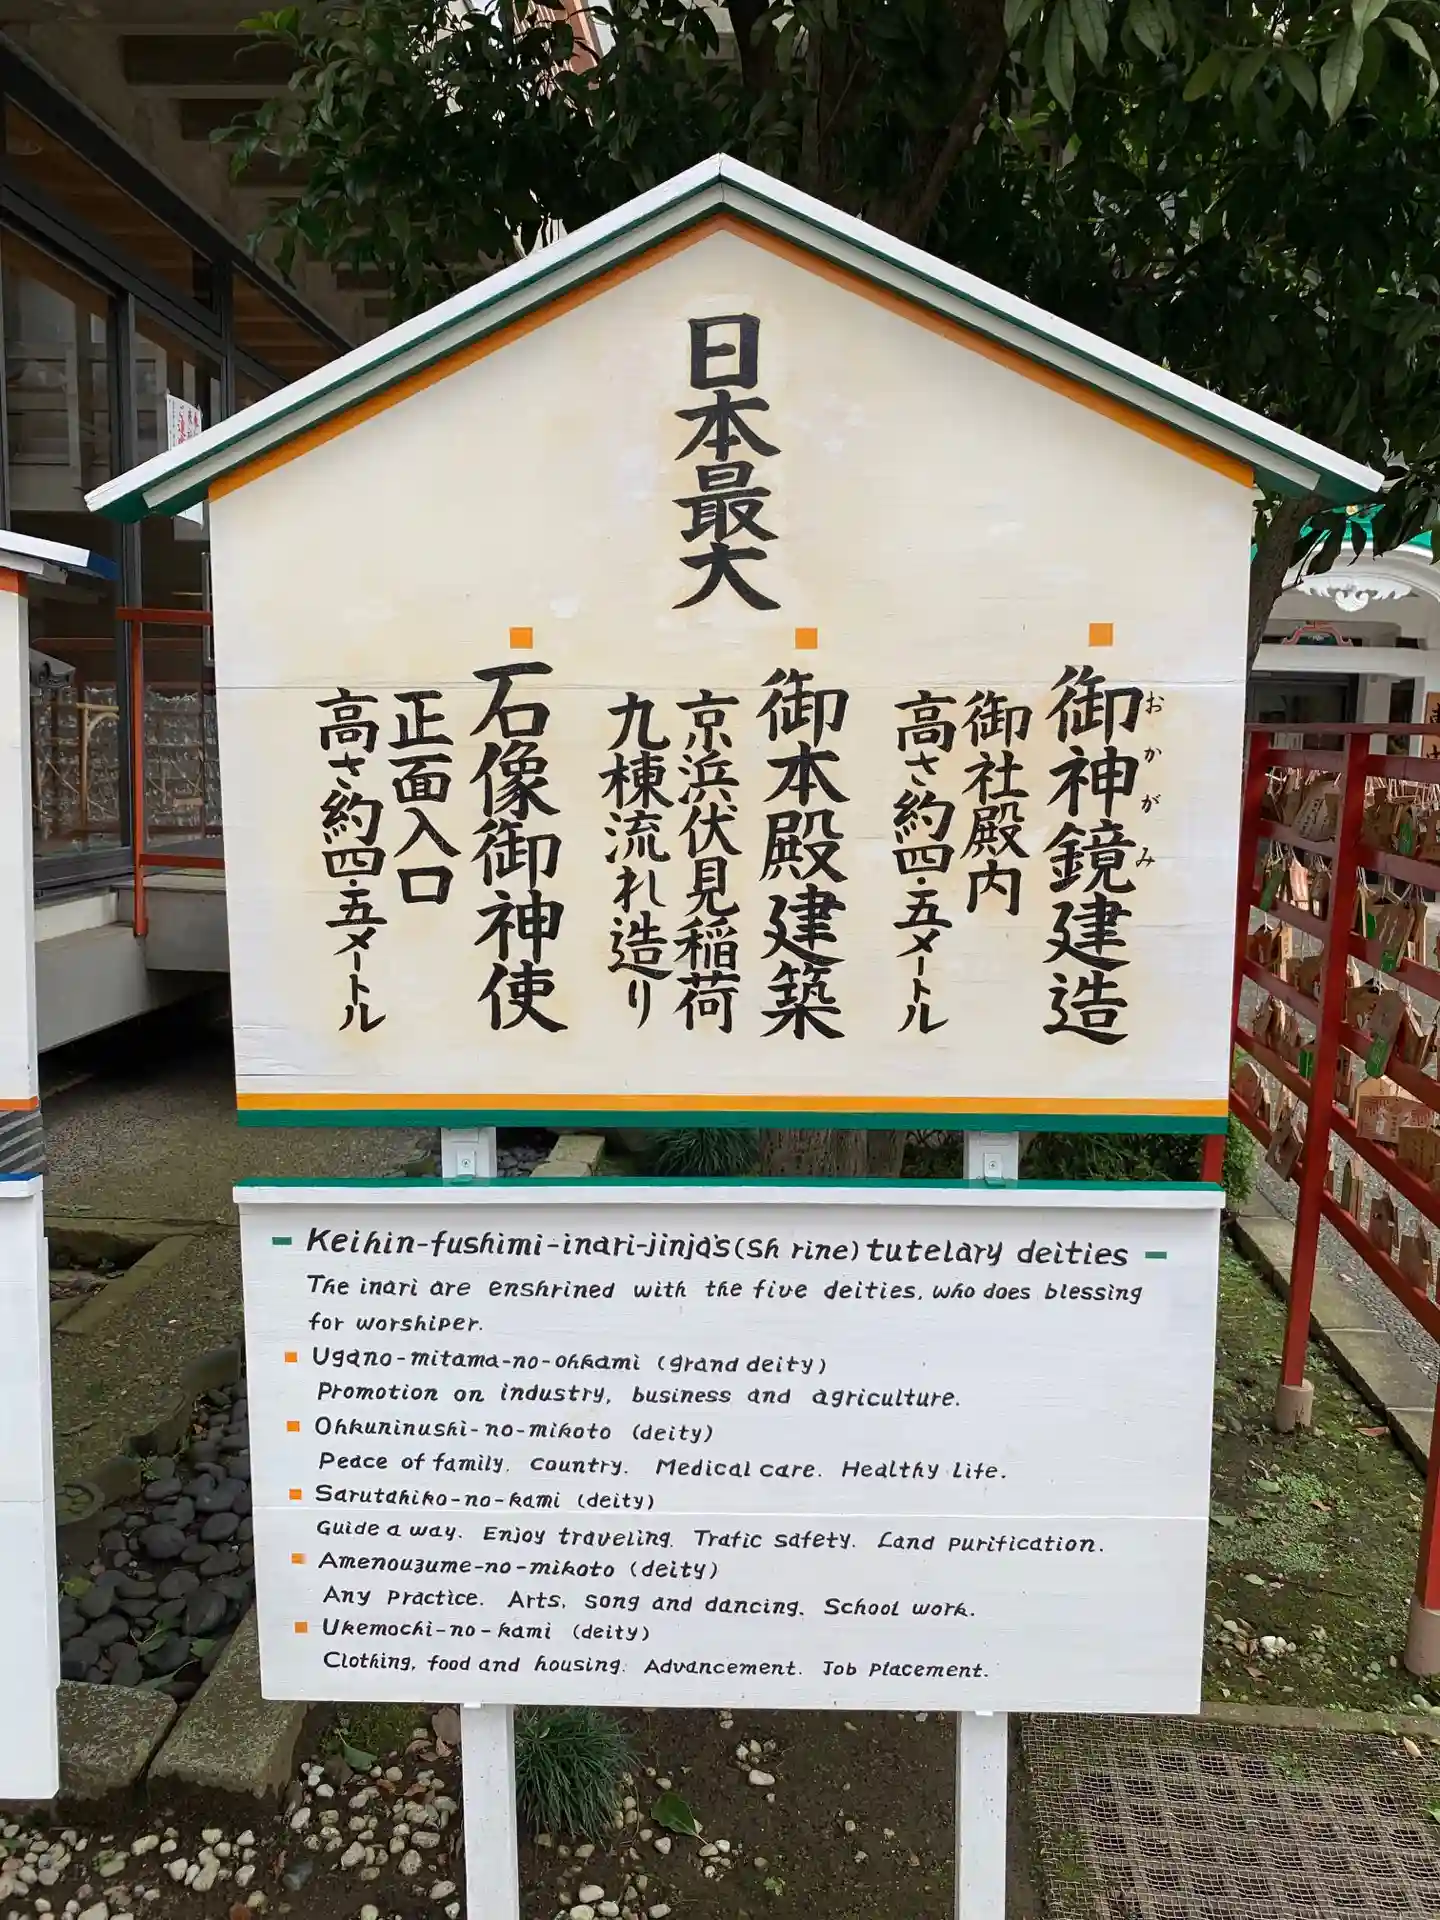 日本最大
御神鏡建造
おかがみ
御社殿内
高さ約四・五メートル
御本殿建築
京浜伏見稲荷
九棟流れ造り
石像御神使
正面入口
高さ約四・五メートル
Keihin-fushimi-inari-jinja's(Sh rine) tutelary deities
The inari are enshrined with the five deities, who does blessing
for worshiper.
Ugano-mitama-no-ohkami (grand deity)
Promotion on industry, business and agriculture.
Ohkuninushi-no-mikoto (deity)
Peace of family, country. Medical care. Healthy life.
Sarutahiko-no-kami (deity)
Guide a way. Enjoy traveling. Trafic safety. Land purification.
Amenouzume-no-mikoto (deity)
Any practice. Arts, song and dancing. School work.
Ukemochi-no-kami (deity)
Clothing, food and housing. Advancement. Job placement.